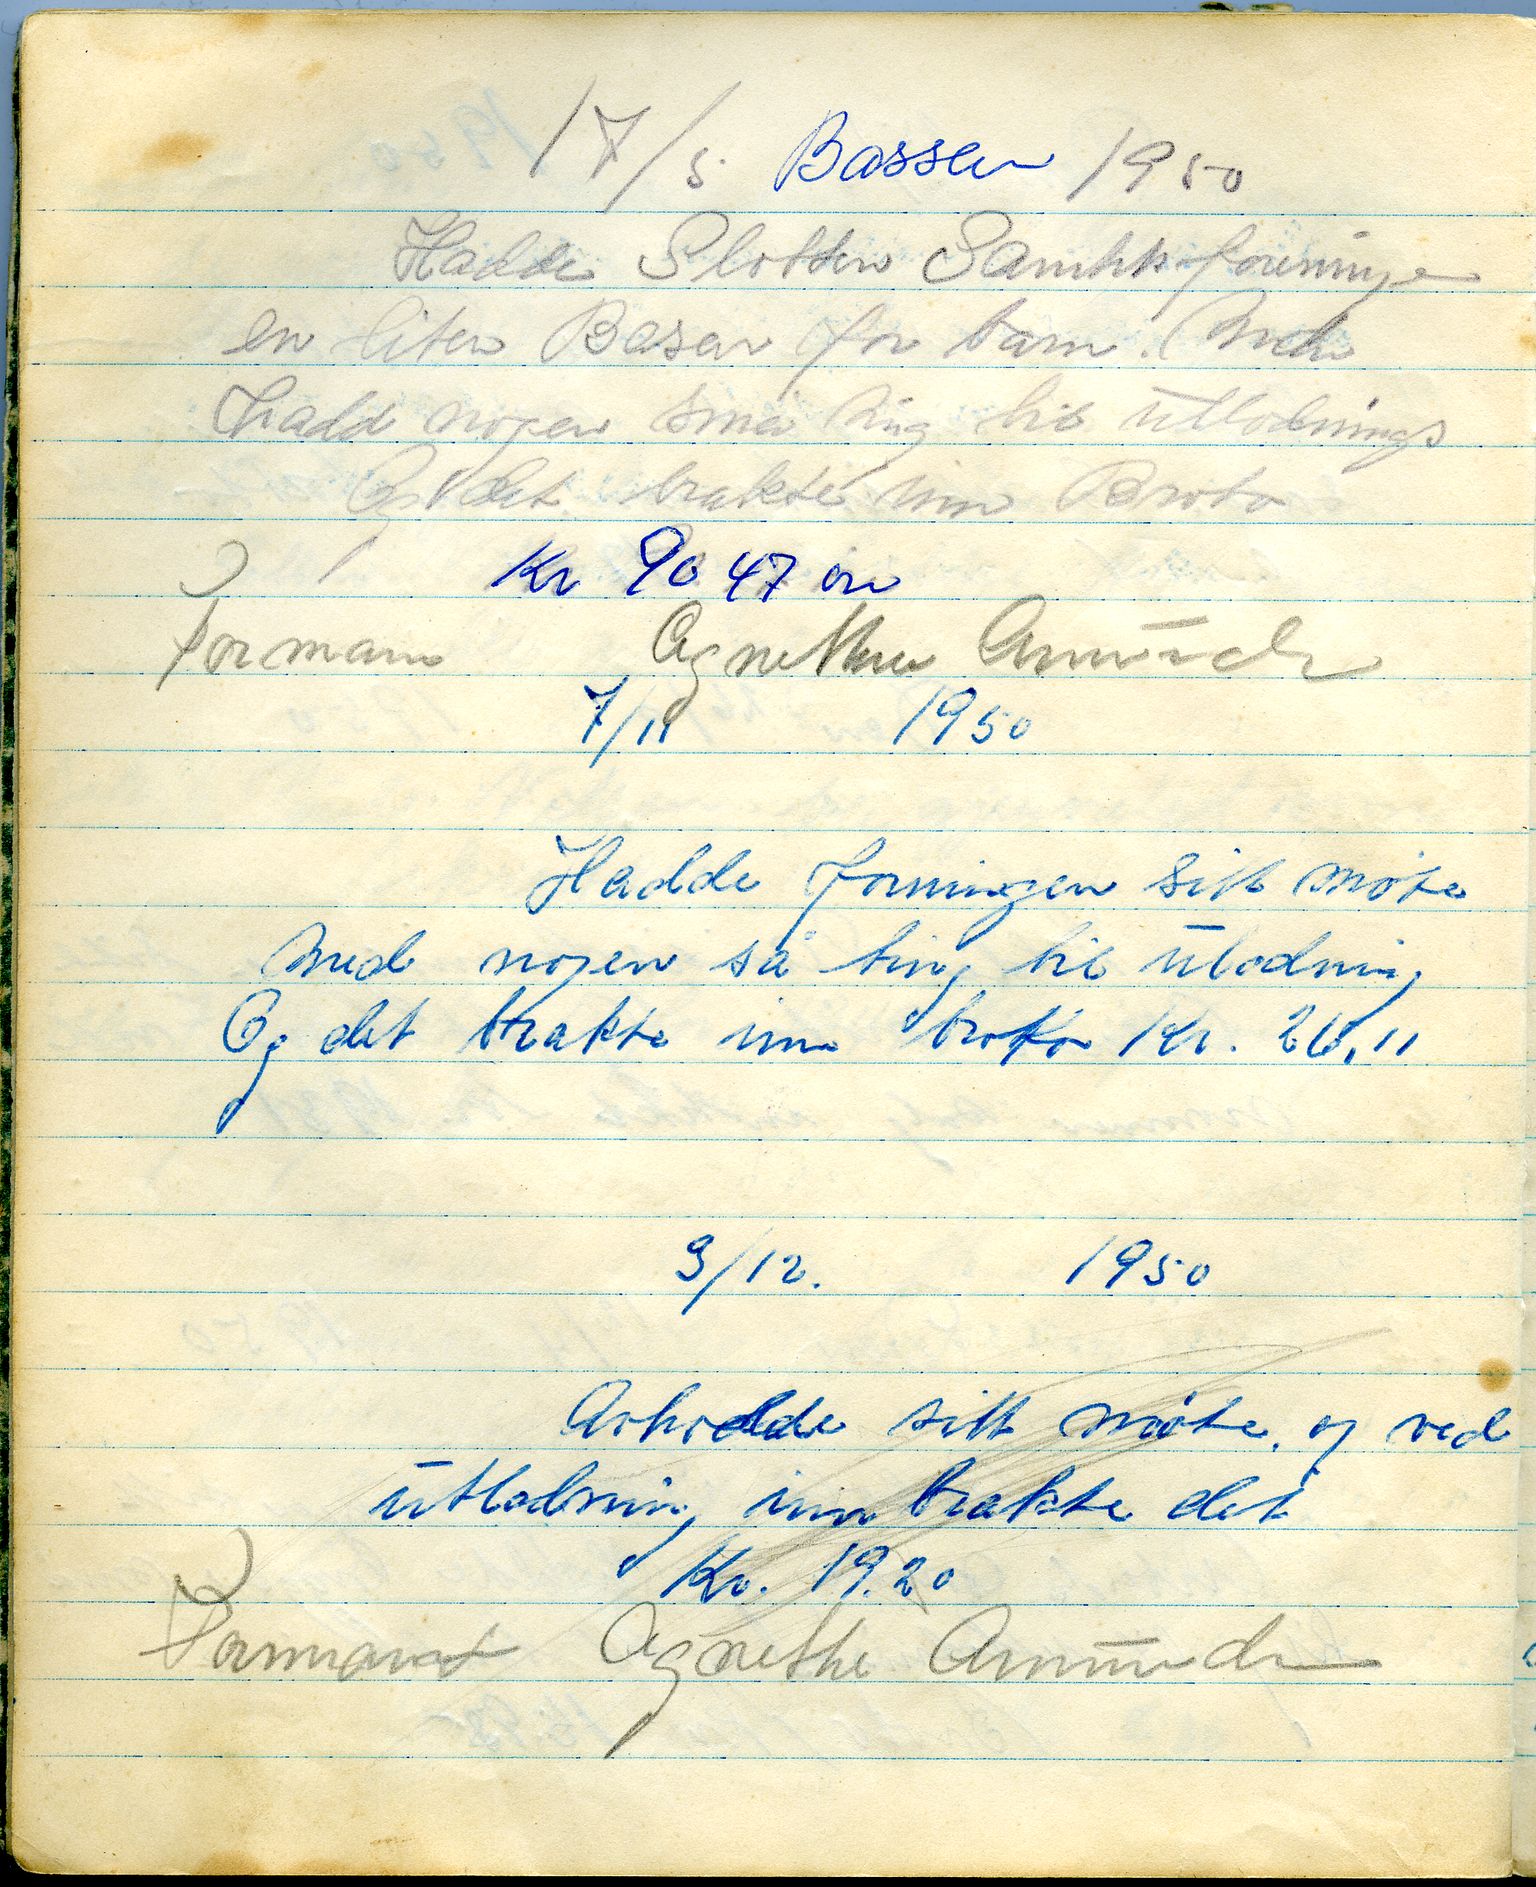 17/5 Basser 1950
Hadde Slotten Sanitetsforeninge
en liten Basar for barn. Med
hadd nogen små ting til utlodnings
Og det brakte inn Broto
Kr 90 47 ør
Formann Agnethe Amund
7/11 1950
Hadde foreningen sitt møte
med nogen så ting til utlodning
Og det brakte inn broto Kr. 26,11
9/12. 1950
Avholdde sitt møte, og ved
utlodning inn brakte det
Kr. 19.20
Formand Agnethe Amund